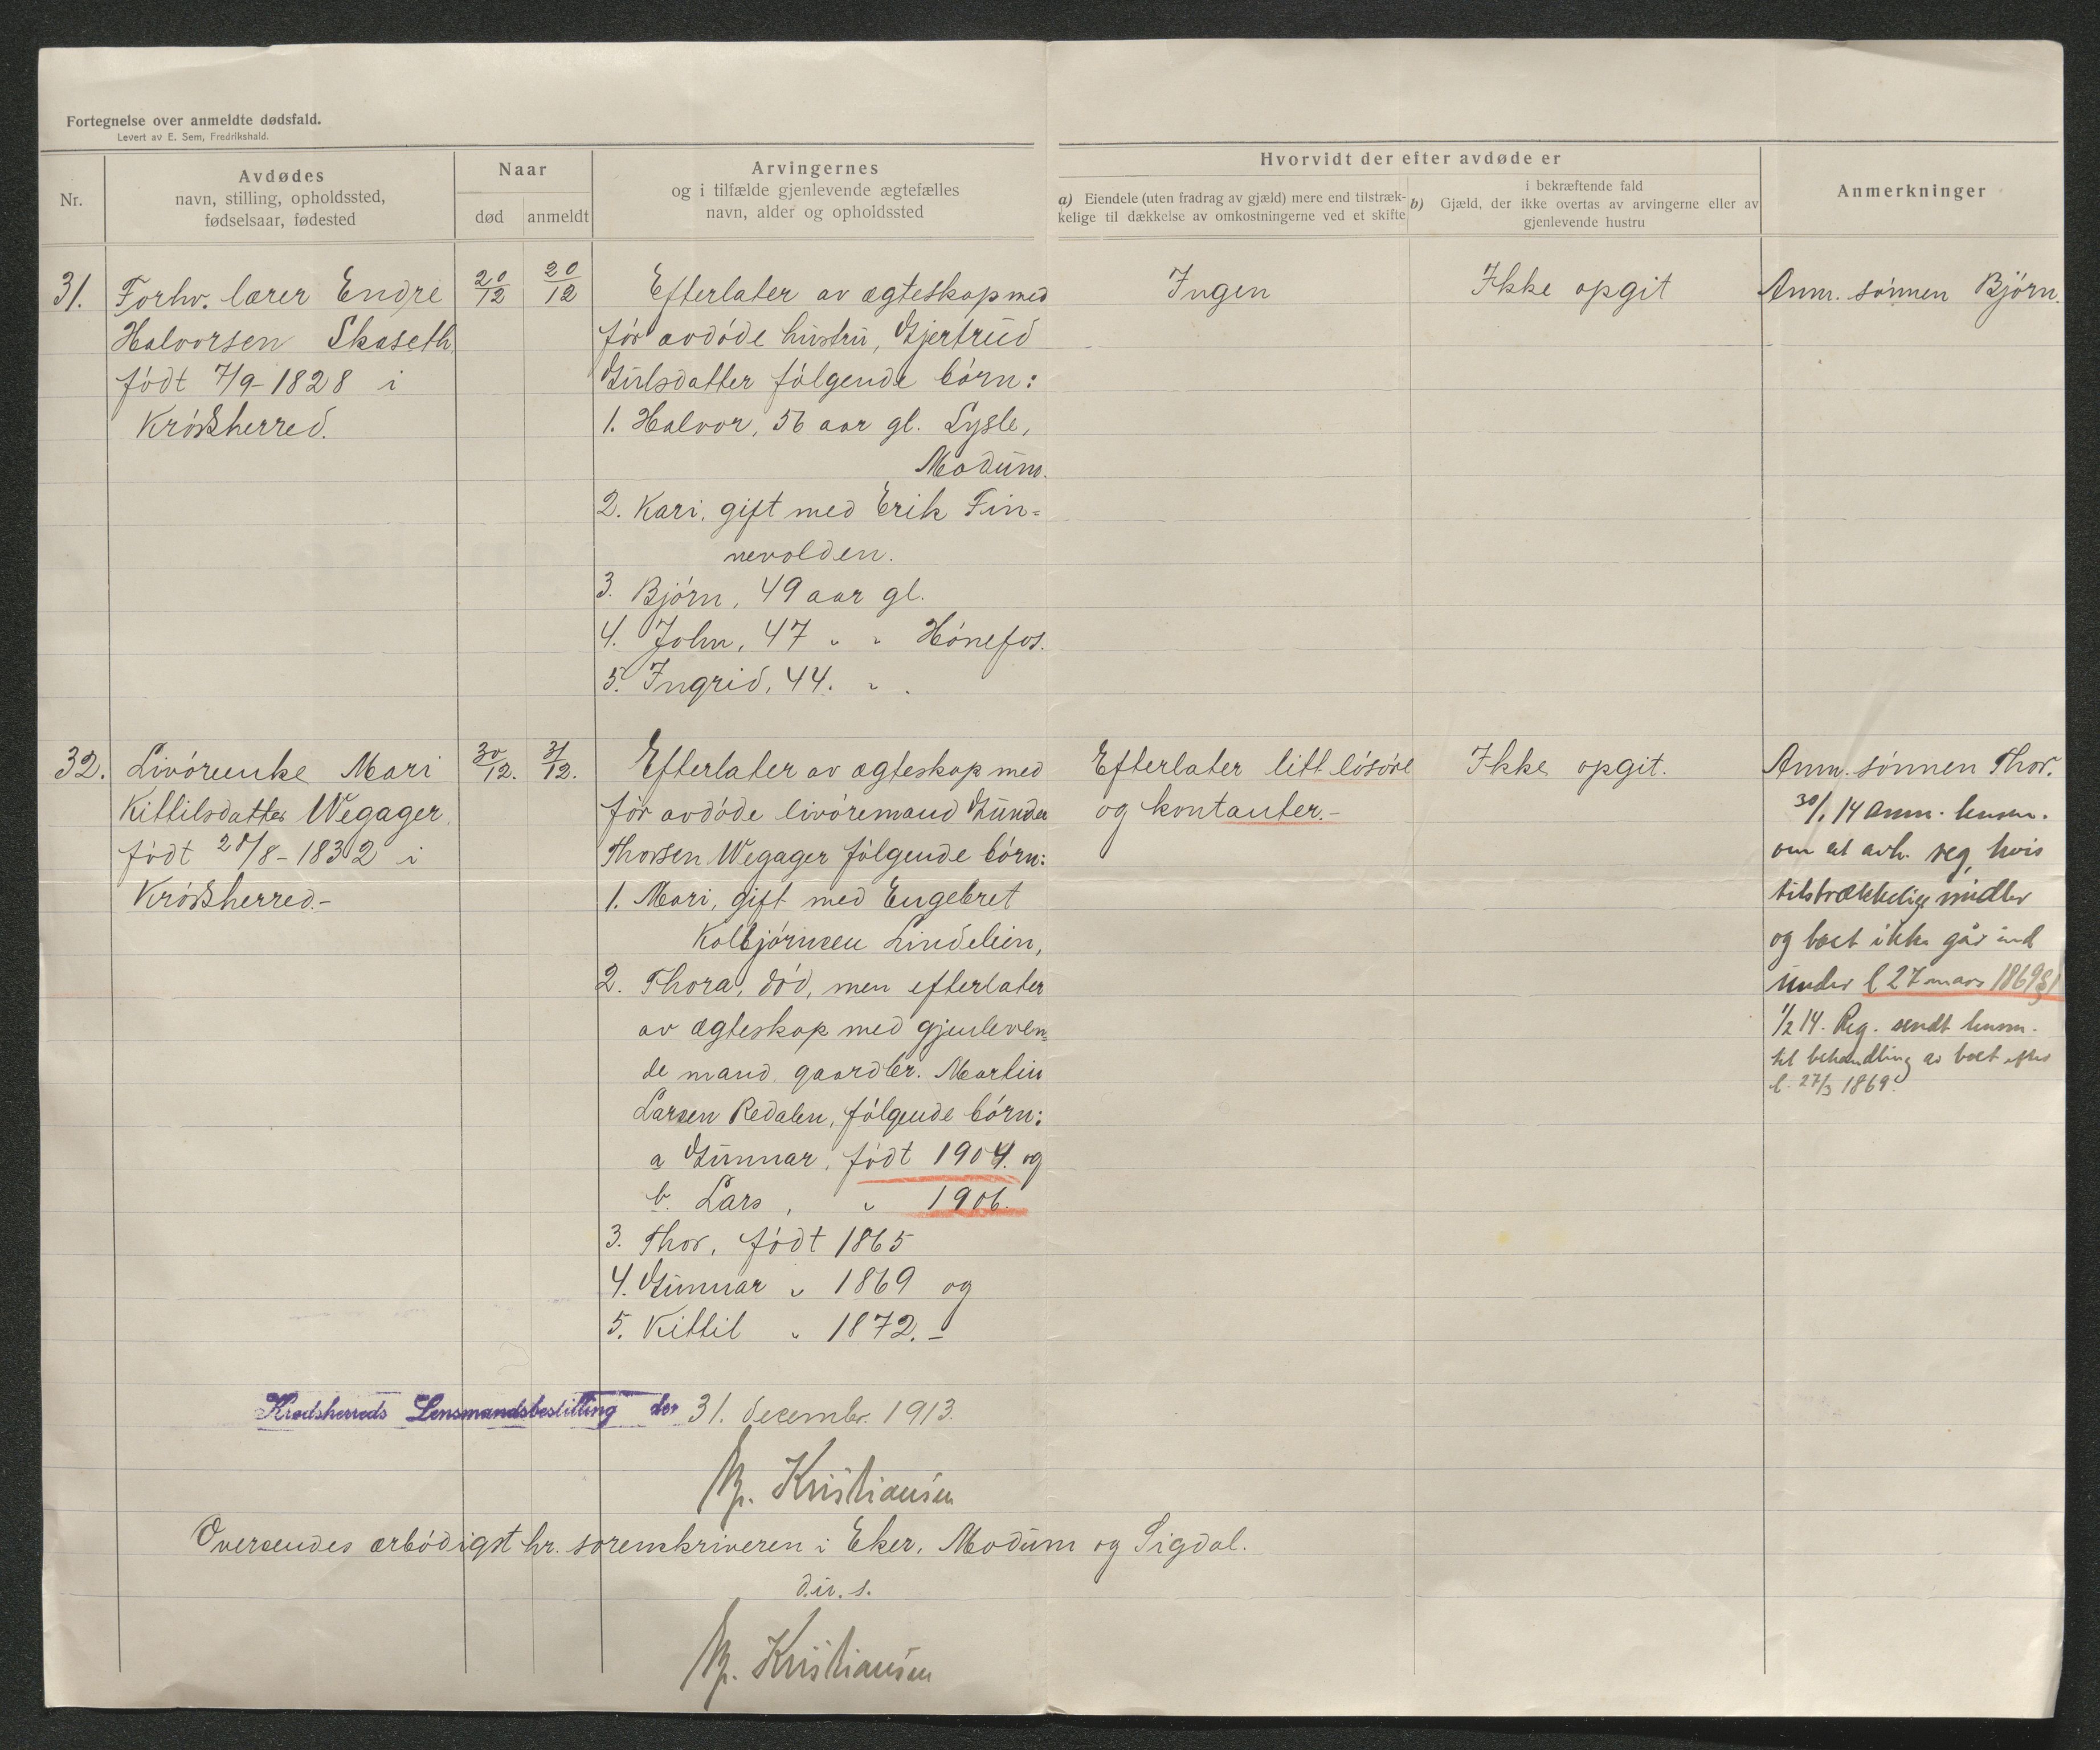 Fortegnelse over anmeldte dødsfald.
Levert av E. Sem, Fredrikshald.
Nr.
Avdødes
navn, stilling, opholdssted,
fødselsaar, fødested
Naar
død
anmeldt
Arvingernes
og i tilfælde gjenlevende ægtefælles
navn, alder og opholdssted
Hvorvidt der efter avdøde er
a) Eiendele (uten fradrag av gjæld) mere end tilstræk-
kelige til dækkelse av omkostningerne ved et skifte
i bekræftende fald
b) Gjæld, der ikke overtas av arvingerne eller av
gjenlevende hustru
Anmerkninger
31.
Forhv. lærer Endre
Halvorsen Skaseth,
født 7/9-1828 i
Krødsherred.
20/12
20/12
Efterlater av ægteskap med
før avdøde hustru, Gjertrud
Gulsdatter følgende børn:
1. Halvor, 56 aar gl. Lysle,
Modum.
2. Kari, gift med Erik Fin=
nevolden.
3. Bjørn, 49 aar gl.
4. John, 47 " " Hønefos.
5. Ingrid, 44. " .
Ingen
Ikke opgit
Anm. sønnen Bjørn.
32.
Livørenke Mari
Kittilsdatter Wegager,
født 28/8-1832 i
Krødsherred.-
30/12.
31/12.
Efterlater av ægteskap med
før avdøde livøremand Gunder
Thorsen Wegager følgende børn:
1. Mari, gift med Engebret
Kolbjørnsen Lindelien,
2. Thora, død, men efterlater
av ægteskap med gjenleven=
de mand, gaardbr. Martin
Larsen Redalen, følgende børn:
a Gunnar, født 1904. og
b. Lars, " 1906.
3. Thor, født 1865
4. Gunnar " 1869 og
5. Kittil " 1872.-
Efterlater litt løsøre
og kontanter.-
Ikke opgit.
Anm. sønnen Thor.
30/1 14 anm. lensm.
om at avh. reg, hvis
tilstrækkelige midler
og boet ikke går ind
under l 27 mars 1869 § 1
1/2 14. Reg. sendt lensm.
til behandling av boet efter
l. 27/3 1869.
Krødsherreds Lensmandsbestilling den 31. decembr. 1913.
Kristiansen
Oversendes ærbødigst hr. sorenskriveren i Eker, Modum og Sigdal.
d. ir. s.
Kristiansen